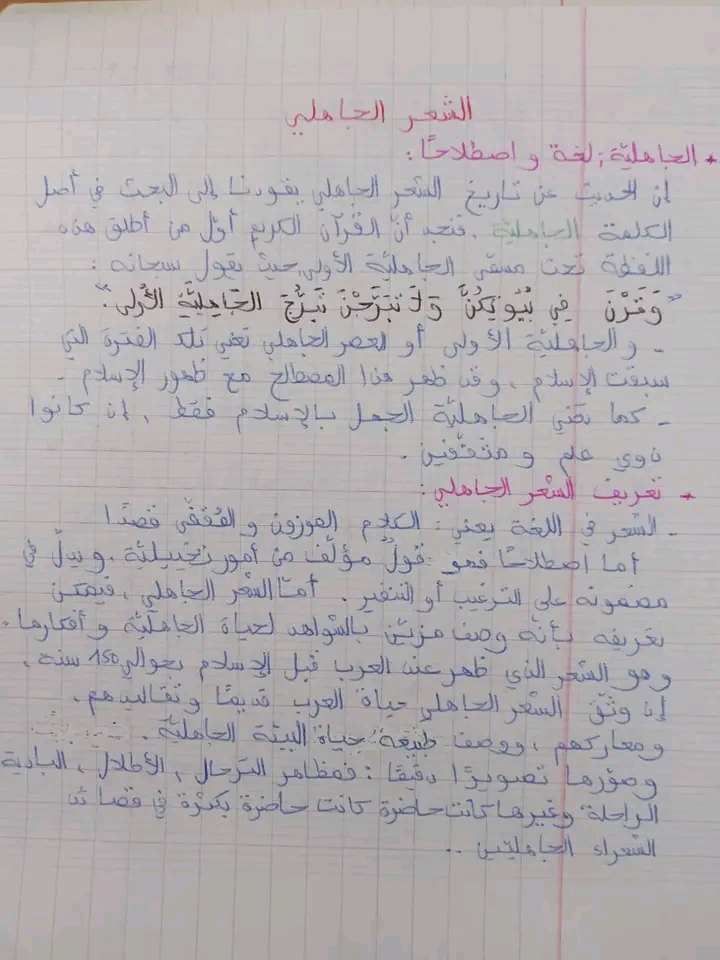 الشعر الجاهلي
* الجاهليّة: لغة و اصطلاحًا:
إن الحديث عن تاريخ الشعر الجاهلي يقودنا إلى البحث في أصل
الكلمة الجاهليّة. فنجد أنّ القرآن الكريم أوّل من أطلق هذه
اللفظة تحت مسمّى الجاهليّة الأولى حيث يقول سبحانه:
"وَقَرْنَ فِي بُيُوتِكُنَّ وَلاَ تَبَرَّجْنَ تَبَرُّجَ الجَاهِلِيَّةِ الأُولَى".
- و الجاهليّة الأولى أو العصر الجاهلي تعني تلك الفترة التي
سبقت الإسلام، وقد ظهر هذا المصطلح مع ظهور الإسلام -
- كما تعني الجاهليّة الجهل بالإسلام فقط، إن كانوا
ذوي علم و مثقّفين.
* تعريف الشعر الجاهلي:
- الشعر في اللغة يعني: الكلام الموزون و المُقفّى قصدًا
أما اصطلاحًا فهو: قولٌ مؤلّف من أمور تخييليّة. و يدلّ في
مضمونه على الترغيب أو التنفير. أمّا الشعر الجاهلي، فيمكن
تعريفه بأنّه وصف مزيّن بالشواهد لحياة الجاهليّة و أفكارها.
وهو الشعر الذي ظهر عند العرب قبل الإسلام بحوالي 150 سنة.
إن وثّق الشعر الجاهلي حياة العرب قديمًا و تقاليدهم.
ومعاركهم، ووصف طبيعة حياة البيئة الجاهليّة.
وصوّرها تصويرًا دقيقًا: فمظاهر الترحال، الأطلال، البادية
الراحلة وغيرها كانت حاضرة كانت حاضرة بكثرة في قصائد
الشعراء الجاهليّين..